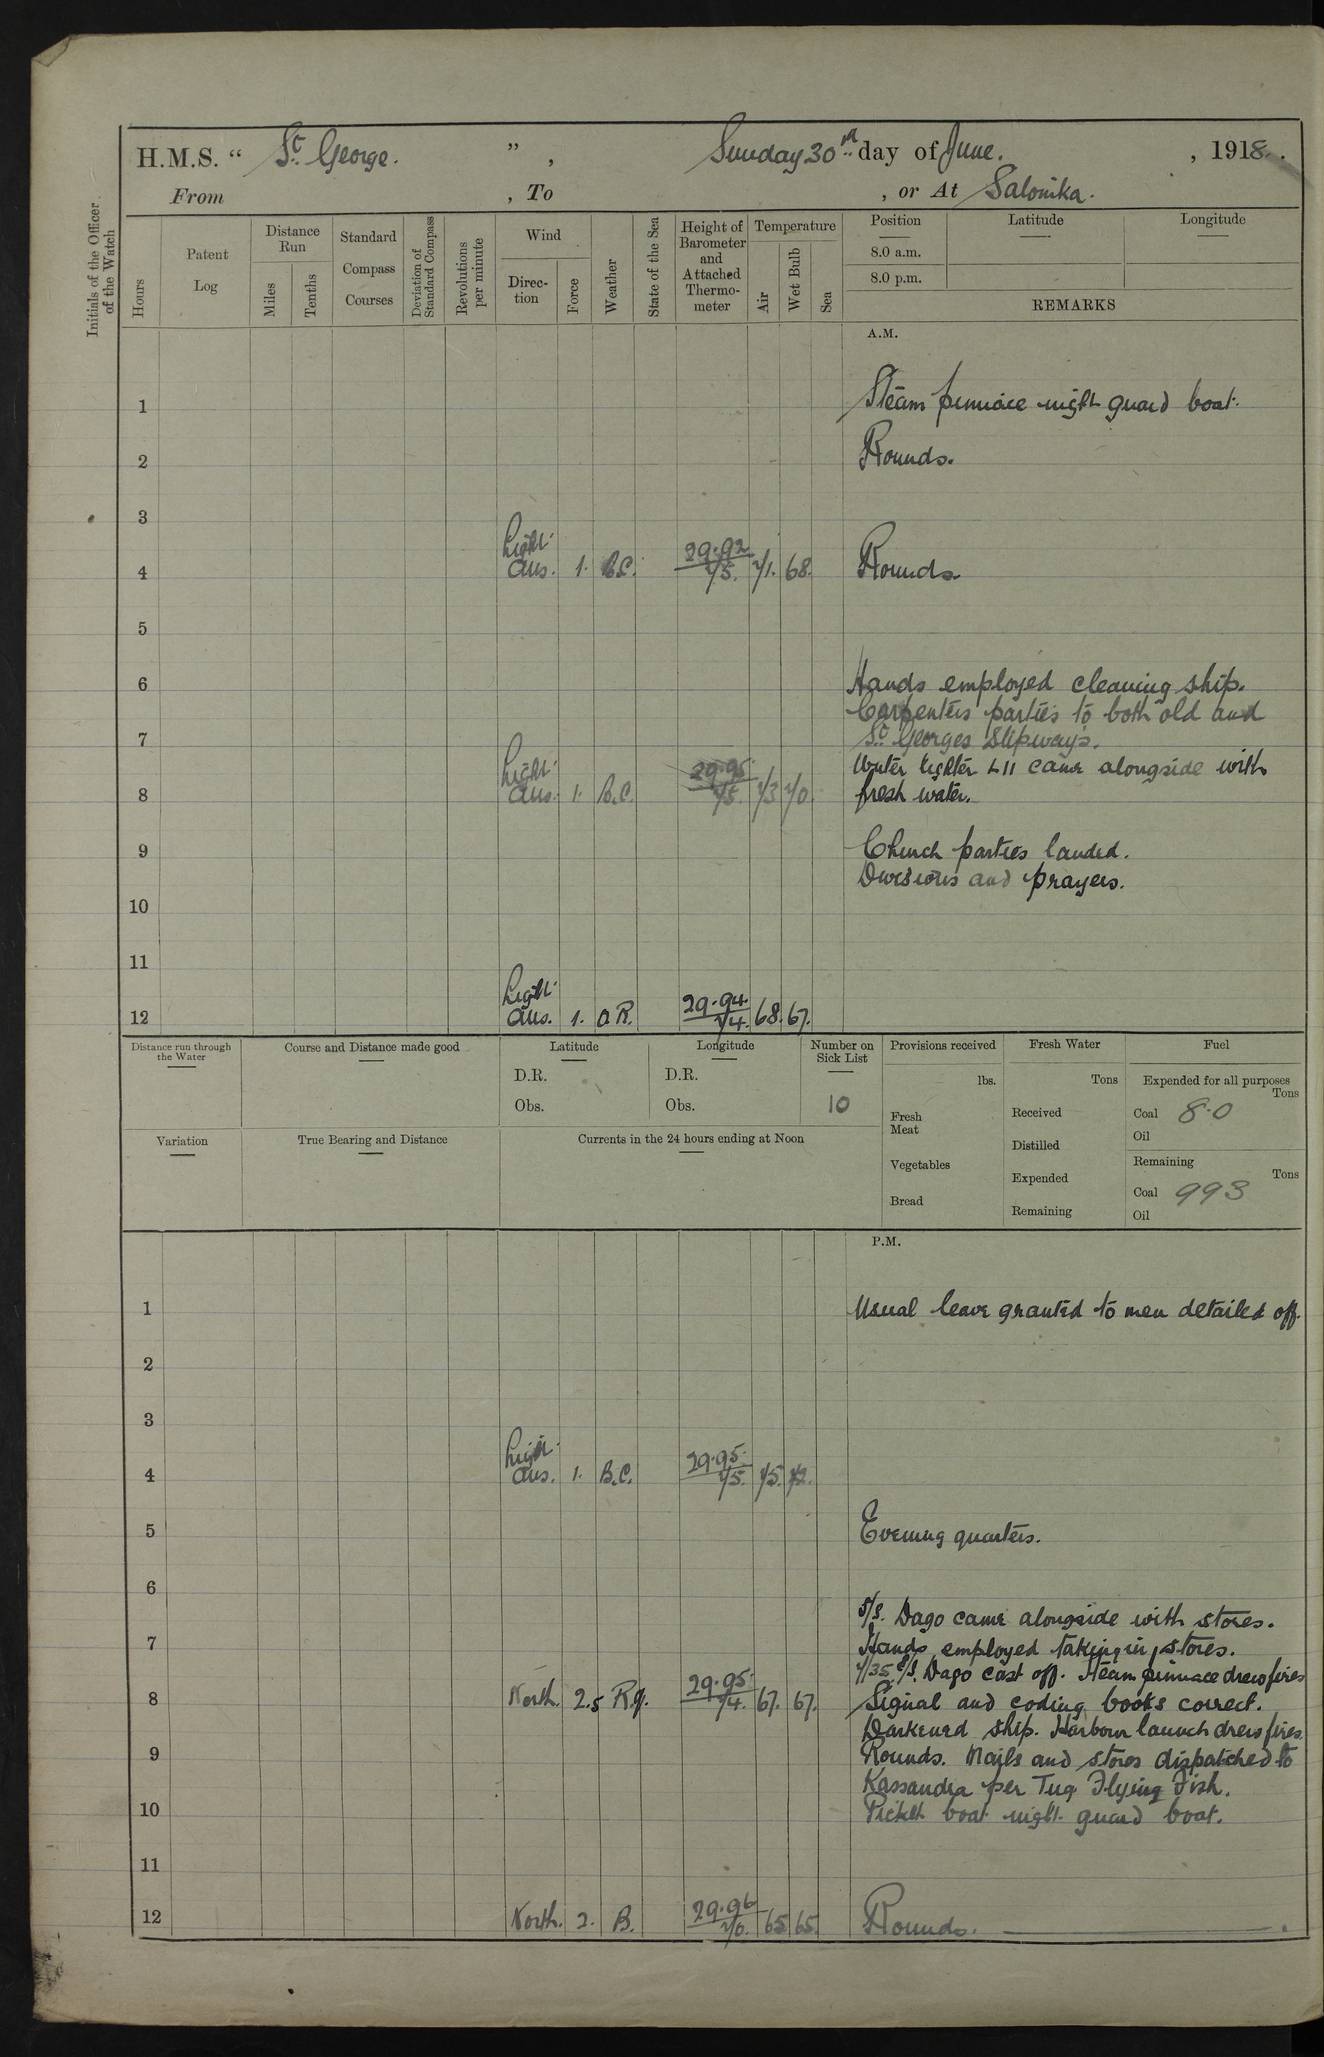 H.M.S. “ St. George. ” , Sunday 30th day of June. , 1918.
From , To , or At Salonika.
Initials of the Officer of the Watch
Hours
Patent Log
Distance Run
Miles
Tenths
Standard Compass Courses
Deviation of Standard Compass
Revolutions per minute
Wind
Direction
Force
Weather
State of the Sea
Height of Barometer and Attached Thermometer
Temperature
Air
Wet Bulb
Sea
Position Latitude Longitude
8.0 a.m.
8.0 p.m.
REMARKS
A.M.
1 Steam pinnace night guard boat.
2 Rounds.
3
4 Light Airs. 1. B.C. 29.92 75. 71. 68. Rounds.
5
6 Hands employed cleaning ship.
Carpenters parties to both old and
7 St Georges Slipways.
Water lighter L11 came alongside with
8 Light Airs. 1. B.C. 29.95 75. 73 70. fresh water.
9 Church parties landed.
Divisions and prayers.
10
11
12 Light Airs. 1. O R. 29.94. 74. 68. 67.
Distance run through the Water
Course and Distance made good
Latitude
D.R.
Obs.
Longitude
D.R.
Obs.
Number on Sick List
10
Variation
True Bearing and Distance
Currents in the 24 hours ending at Noon
Provisions received
lbs.
Fresh Meat
Vegetables
Bread
Fresh Water
Tons
Received
Distilled
Expended
Remaining
Fuel
Expended for all purposes
Tons
Coal 8.0
Oil
Remaining
Tons
Coal 993
Oil
P.M.
1 Usual leave granted to men detailed off.
2
3
4 Light Airs. 1. B.C. 29.95. 75. 75. 72.
5 Evening quarters.
6
S/S. Dago came alongside with stores.
7 Hands employed taking in stores.
7/35 S/S. Dago cast off. Steam pinnace drew fires
8 North. 2.5 R.q. 29.95. 74. 67. 67. Signal and coding books correct.
Darkened ship. Harbour launch drew fires.
9 Rounds. Mails and stores dispatched to
Kassandra per Tug Flying Fish.
10 Picket boat night guard boat.
11
12 North. 2. B. 29.96 70. 65 65. Rounds.